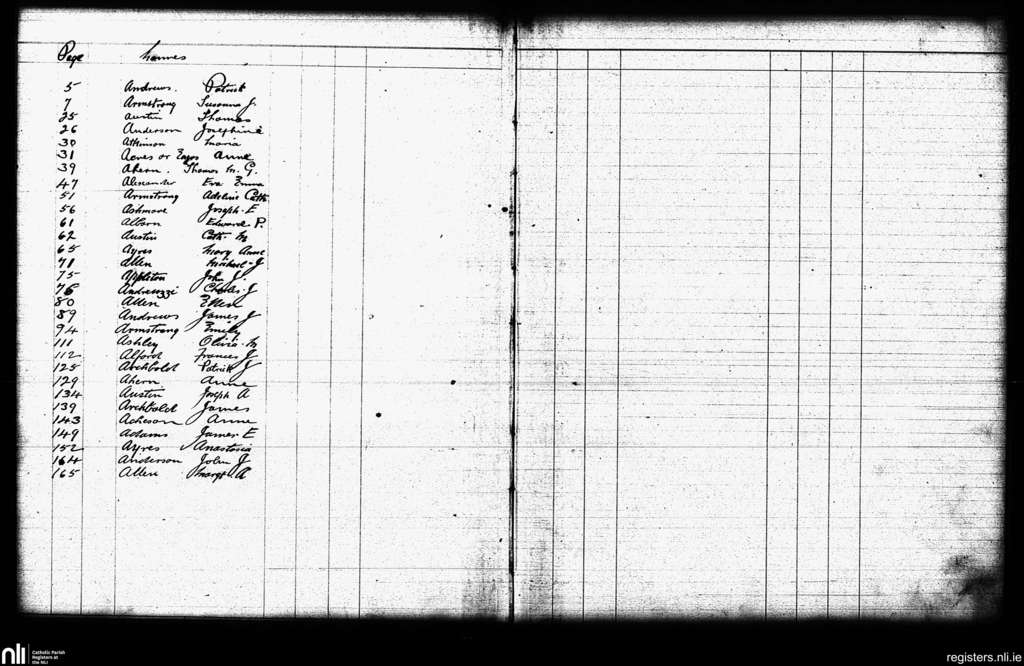 Page Names
5 Andrews. Patrick
7 Armstrong Susanna J.
25 Austin Thomas
26 Anderson Josephine
30 Atkinson Maria
31 Acres or Eagos Anne
39 Ahern. Thomas M. G.
47 Alexander Eva Emma
51 Armstrong Adeline Cath
56 Ashmore Joseph E
61 Alborn Edward P.
62 Austin Cath. M
65 Ayres Mary Anne
71 Allen Michael J
75 Appleton John J.
76 Andreuzzi Charles J
80 Allen Ellen
89 Andrews James J
94 Armstrong Emily
111 Ashley Olivia M
112 Alford Frances J
125 Archbold Patrick J
129 Ahern Anne
134 Austin Joseph A
139 Archbold James
143 Acheson Anne
149 Adams James E
152 Ayres Anastasia
164 Anderson John J
165 Allen Margt A
nli Catholic Parish
Registers at
the NLI
registers.nli.ie